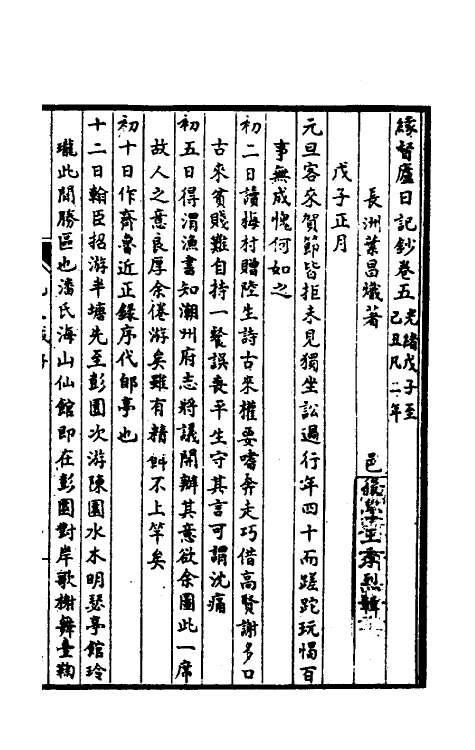 緣督廬日記鈔卷五 光緒戊子至己丑凡二年
長洲葉昌熾著 邑後學王季烈輯
戊子正月
元旦客來賀節皆拒未見獨坐訟過行年四十而蹉跎玩愒百
事無成愧何如之
初二日讀梅村贈陸生詩古來權要嗜奔走巧借高賢謝多口
古來貧賤難自持一餐誤喪平生守其言可謂沈痛
初五日得渭漁書知潮州府志將議開辦其意欲余圖此一席
故人之意良厚余倦游矣雖有精 不上竿矣
初十日作齊魯近正錄序代邵亭也
十二日翰臣招游半塘先至彭園次游陳園水木明瑟亭館玲
瓏此間勝區也潘氏海山仙館即在彭園對岸歌榭舞臺鞠